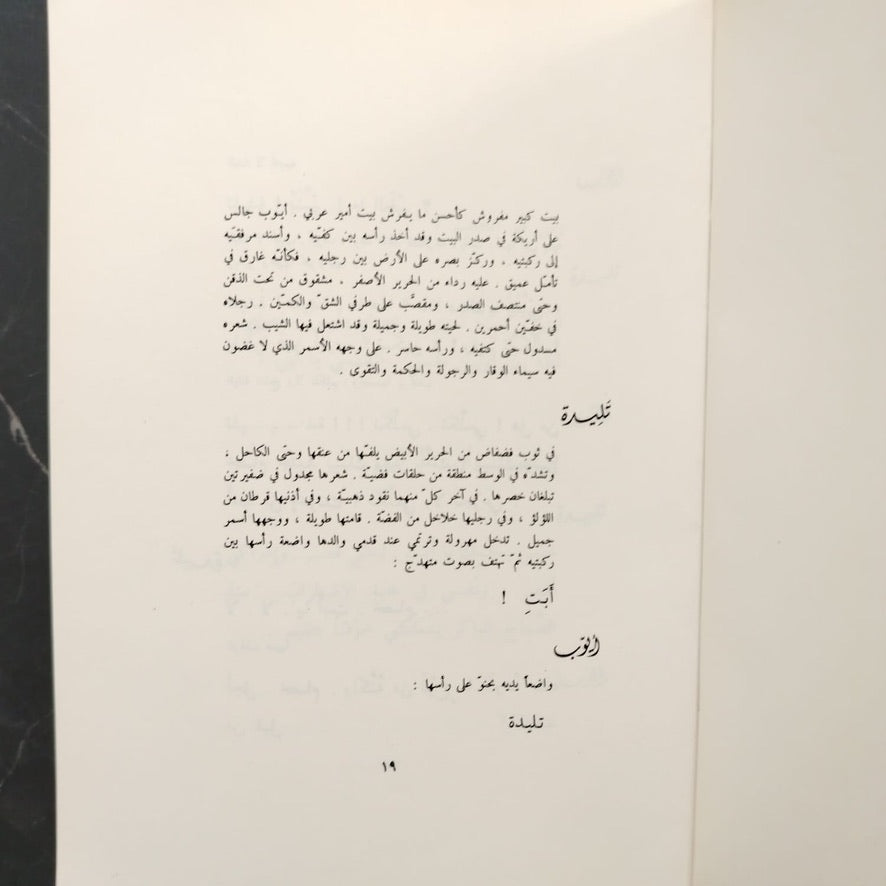 بيت كبير مفروش كأحسن ما يفرش بيت أمير عربي . أيّوب جالس
على أريكة في صدر البيت وقد أخذ رأسه بين كفّيه ، وأسند مرفقيه
إلى ركبتيه ، وركّز بصره على الأرض بين رجليه ، فكأنّه غارق في
تأمّل عميق . عليه رداء من الحرير الأصفر ، مشقوق من تحت الذقن
وحتى منتصف الصدر ، ومقصّب على طرفي الشقّ والكمّين . رجلاه
في خفّين أحمرين . لحيته طويلة وجميلة وقد اشتعل فيها الشيب . شعره
مسدول حتى كتفيه ، ورأسه حاسر . على وجهه الأسمر الذي لا غضون
فيه سيماء الوقار والرجولة والحكمة والتقوى .
تَلِيدة
في ثوب فضفاض من الحرير الأبيض يلفّها من عنقها وحتى الكاحل ،
وتشدّه في الوسط منطقة من حلقات فضيّة . شعرها مجدول في ضفيرتين
تبلغان خصرها . في آخر كلّ منهما نقود ذهبيّة ، وفي أذنيها قرطان من
اللؤلؤ ، وفي رجليها خلاخل من الفضّة . قامتها طويلة ، ووجهها أسمر
جميل . تدخل مهرولة وترتمي عند قدمي والدها واضعة رأسها بين
ركبتيه ثمّ تهتف بصوت متهدّج :
أَبَتِ !
أيّوب
واضعاً يديه بحنوّ على رأسها :
تليدة
١٩